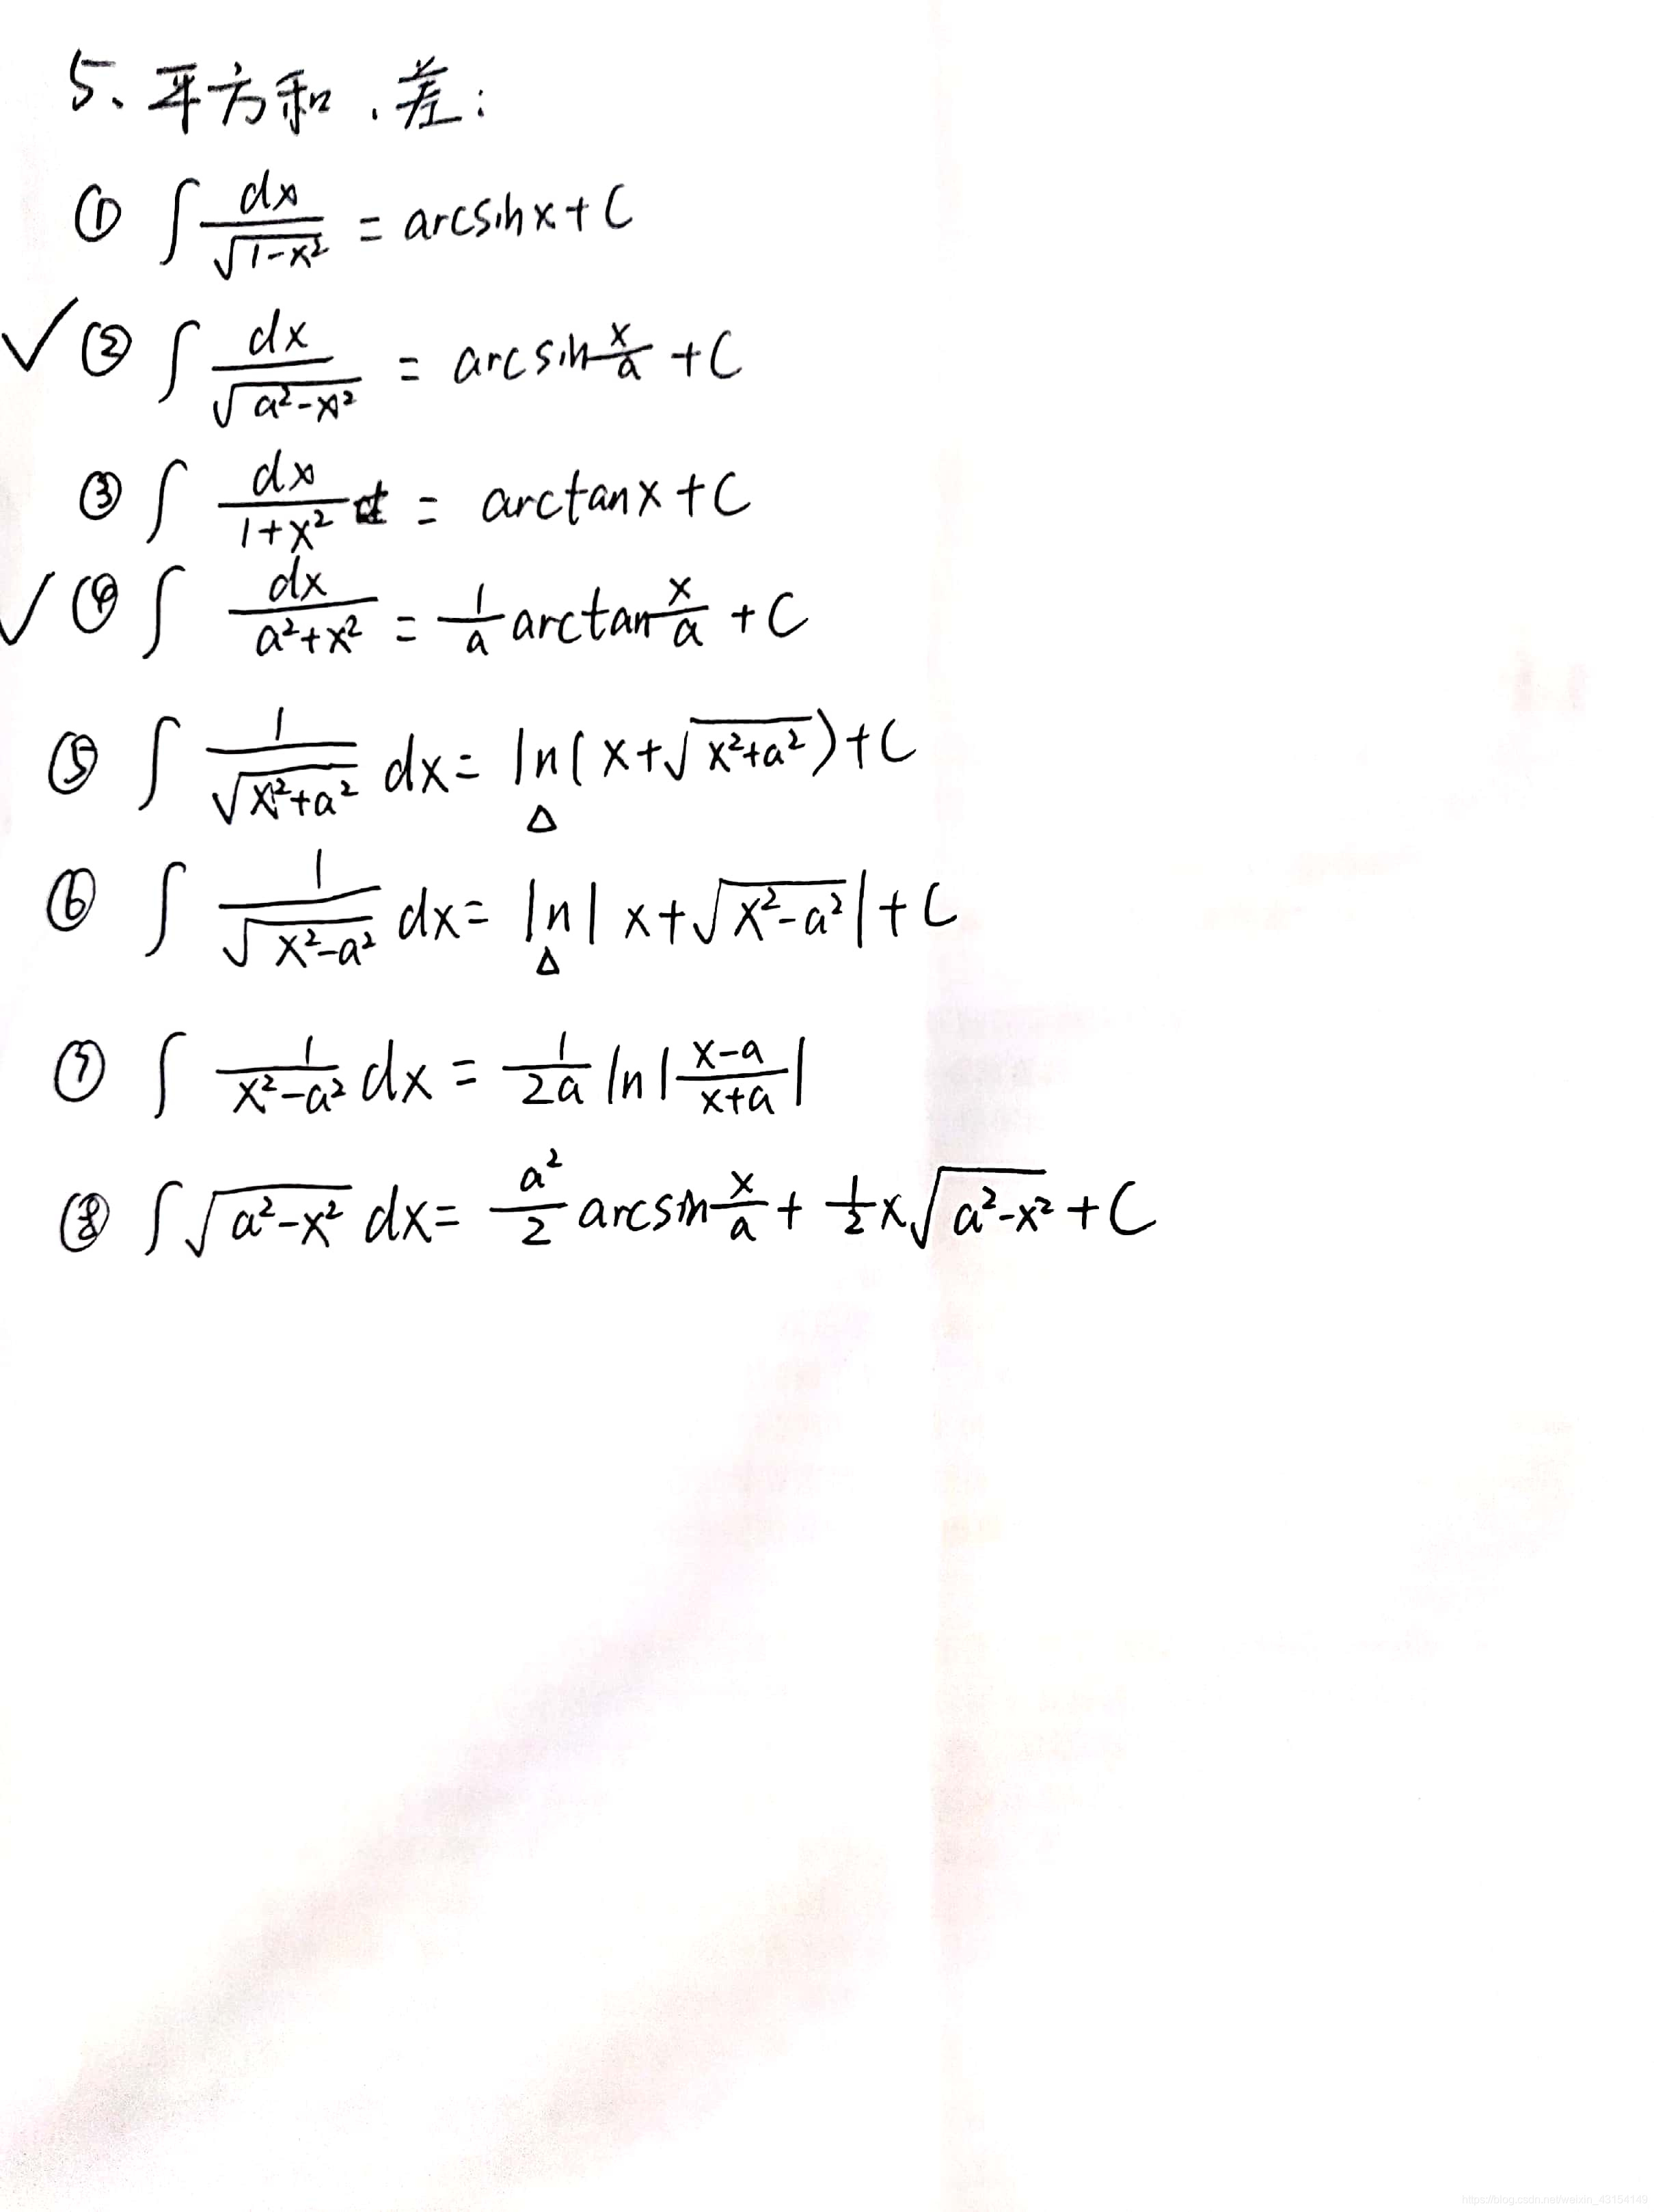 5、平方和、差:
① ∫ dx/√(1-x²) = arcsinx+C
✓② ∫ dx/√(a²-x²) = arcsin x/a +C
③ ∫ dx/(1+x²) = arctanx+C
✓④ ∫ dx/(a²+x²) = 1/a arctan x/a +C
⑤ ∫ 1/√(x²+a²) dx= ln(x+√(x²+a²))+C
△
⑥ ∫ 1/√(x²-a²) dx= ln|x+√(x²-a²)|+C
△
⑦ ∫ 1/(x²-a²) dx = 1/2a ln|(x-a)/(x+a)|
⑧ ∫√(a²-x²) dx= a²/2 arcsin x/a + 1/2 x√(a²-x²) +C
https://blog.csdn.net/weixin_43154149